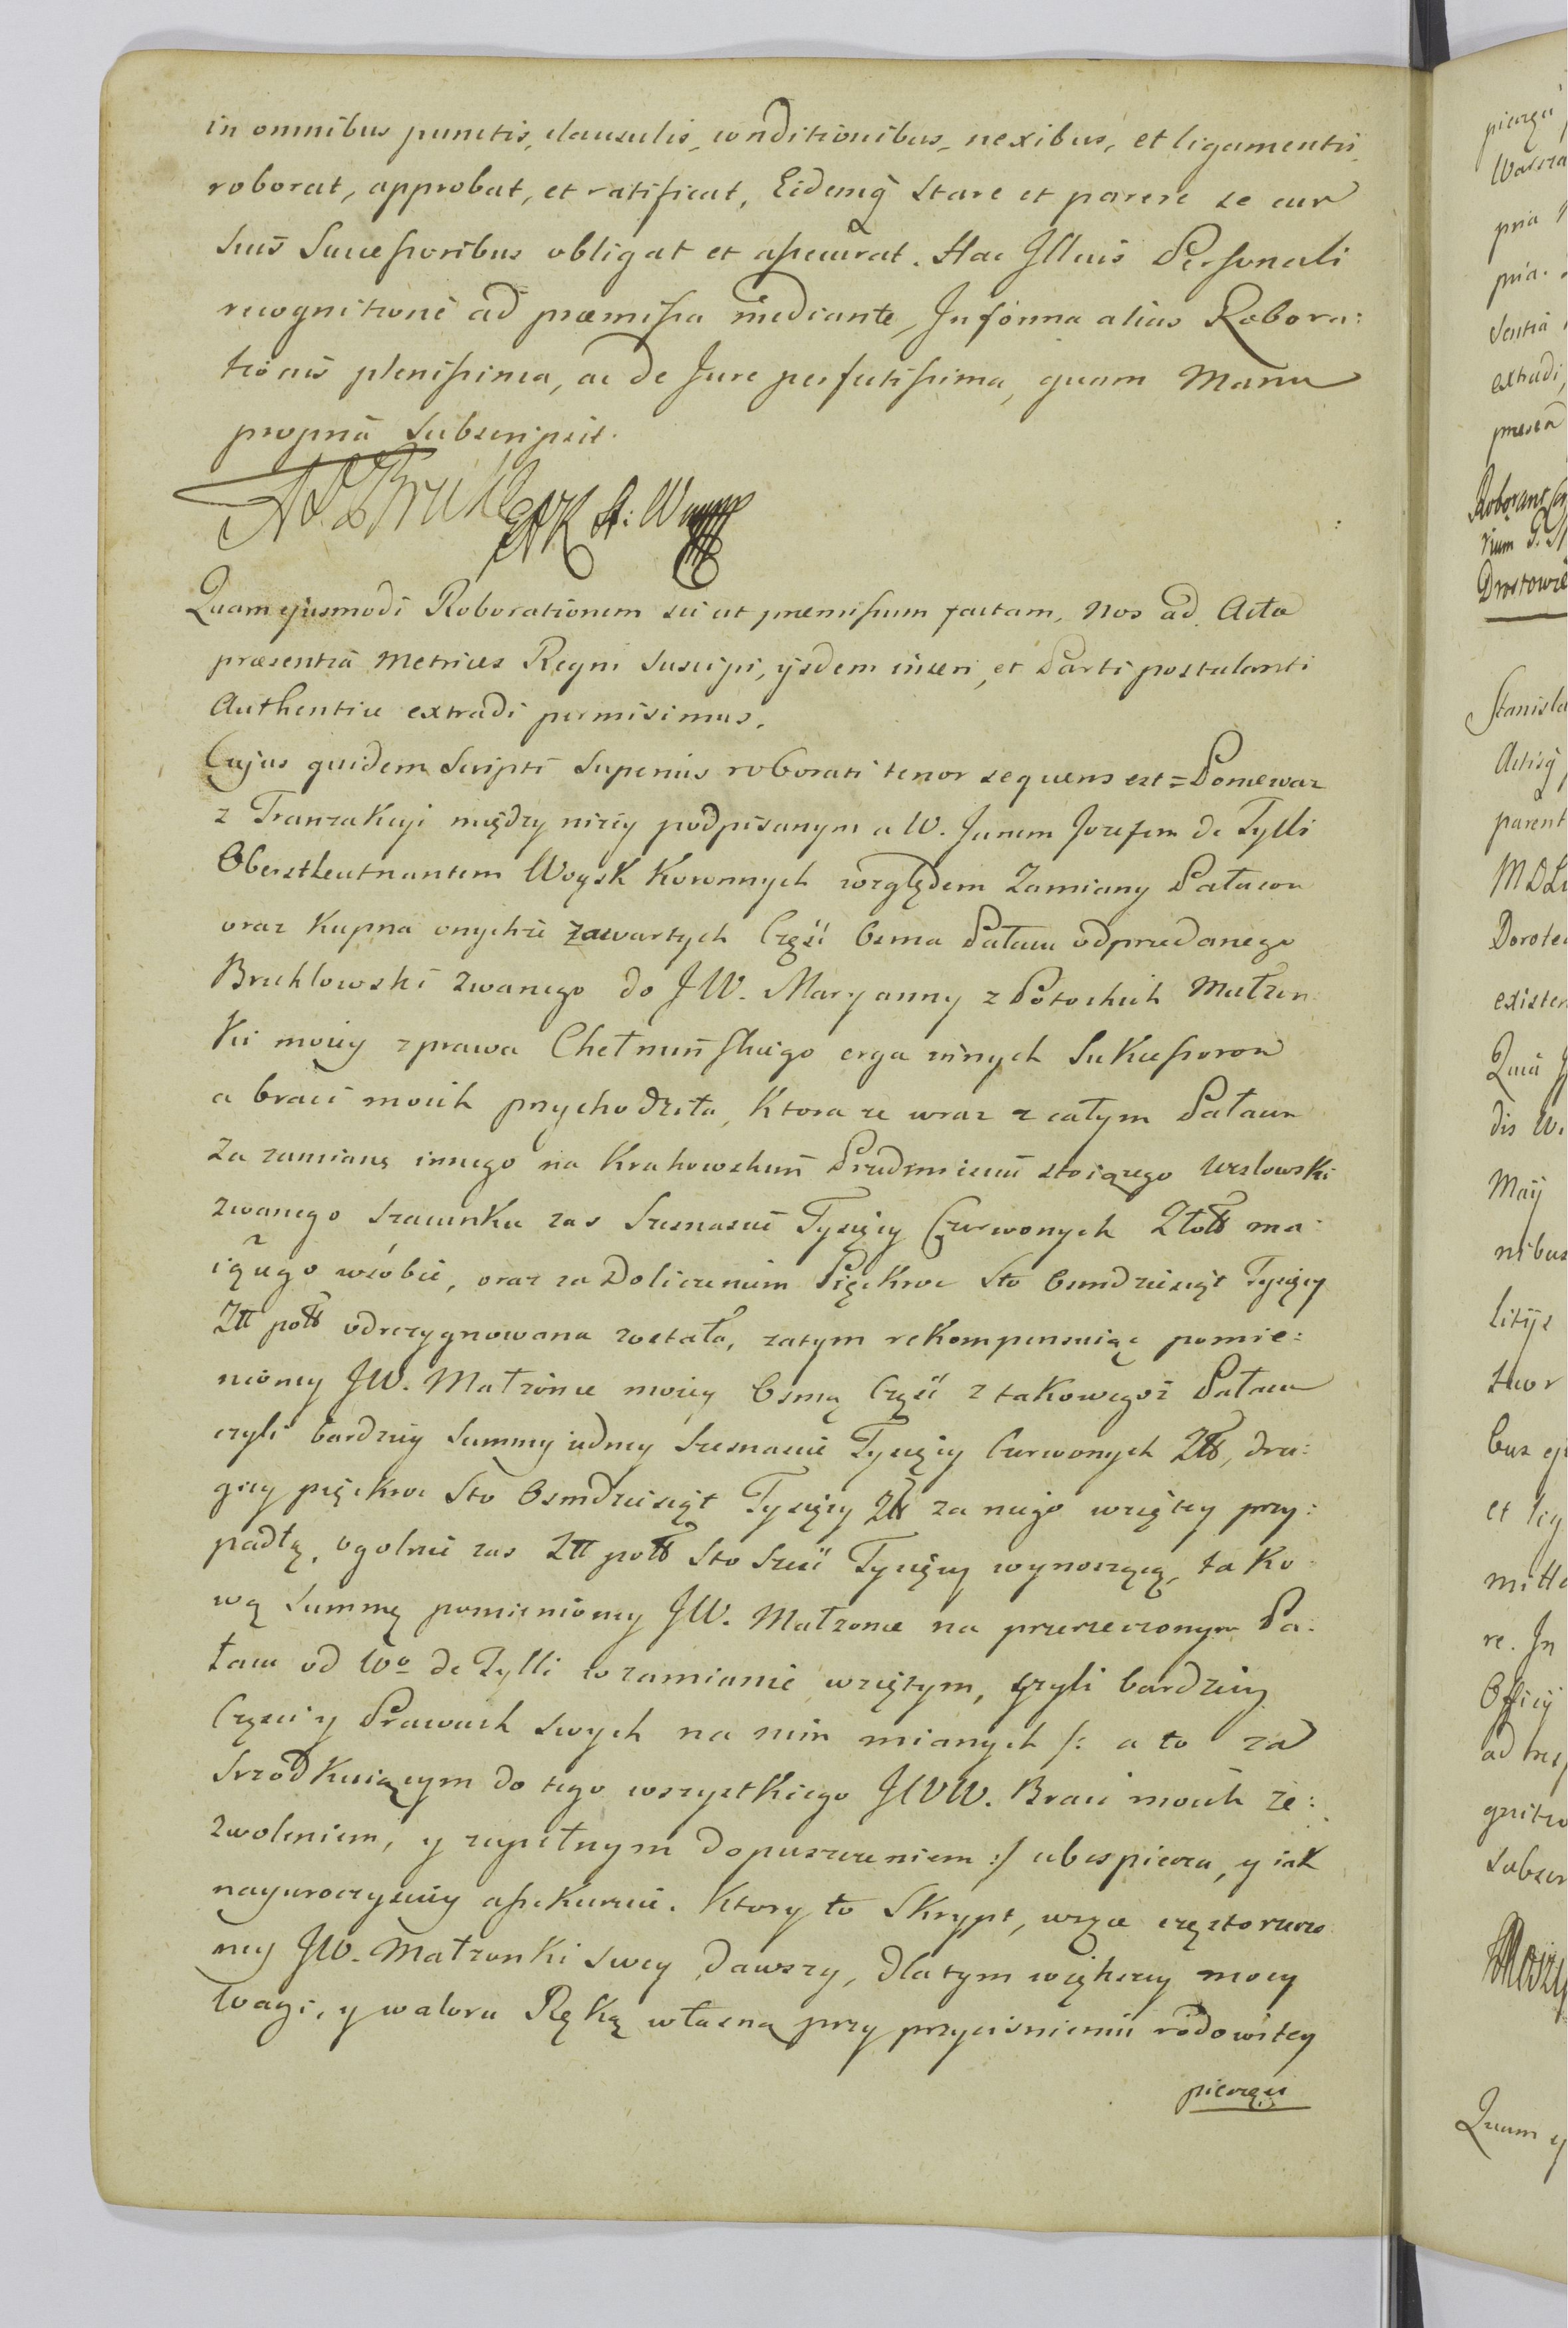 in omnibus punctis, clausulis, conditionibus, nexibus, et ligamentis
roborat, approbat, et ratificat, Eidemq̃ stare et parere se cum
suis Successoribus obligat et assecurat. Hac Illius Personali
recognitione ad præmissa mediante, In forma alias Robora:
tionis plenissima, ac de Jure perfectissima, quam Manu
propria subscripsit.
A. F. Bruhl
Quam ejusmodi Roborationem sic ut præmissum factam, Nos ad Acta
præsentia Metrices Regni suscipi, ijsdem inseri, et Parti postulanti
Authentice extradi permisimus.
Cujus quidem Scripti superius roborati tenor sequens est = Poniewaz
z Tranzakcyi między niżey podpisanym a W. Janem Jozefem de Tylli
Oberstleutnantem Woysk Koronnych względem Zamiany Pałacow
oraz Kupna onychże zawartych Część Osma Pałacu odprzedanego
Bruhlowski zwanego do JW. Maryanny z Potockich Małżon
ki moiey z prawa Chełminskiego erga innych Sukcessorow
a braci moich przychodziła, Ktora ze wraz z całym Pałacem
za zamianę innego na Krakowskim Przedmieściu stoiącego Wesslowski
zwanego szacunku zas Szesnascie Tysięcy Czerwonych Złott ma:
iącego w sobie, oraz za Doliczeniem Pięckroc Sto Osmdziesiąt Tysięcy
Ztt poltt odrezygnowana została, zatym rekompensuiąc pomie:
nioney JW. Małżonce moiey Osmą Część z takowegoż Pałacu
czyli bardziey Summy iedney Szesnascie Tysięcy Czerwonych Ztt, dru:
giey pięckroc Sto Osmdziesiąt Tysięcy Ztt za niego wziętey przy:
padłą, ogolnie zas Ztt poltt Sto Szesc Tysięcy wynoszącą, tako:
wą Summę pomienioney JW. Małzonce na przerzeczonym Pa:
łacu od Wo de Tylli w zamianie wziętym, czyli bardziey
Części y Prawach swych na nim mianych /: a to za
Srzodkuiącym do tego wszystkiego JWW. Braci moich ze:
zwoleniem, y zupełnym dopuszczeniem :/ ubespiecza, y iak
nayuroczysciey assekuruie. Ktory to Skrypt, w ręce częstorzeczo
ney JW. Małzonki swey dawszy, dla tym większey mocy
wagi, y waloru Ręką własną przy przycisnieniu rodowitey
pieczęci